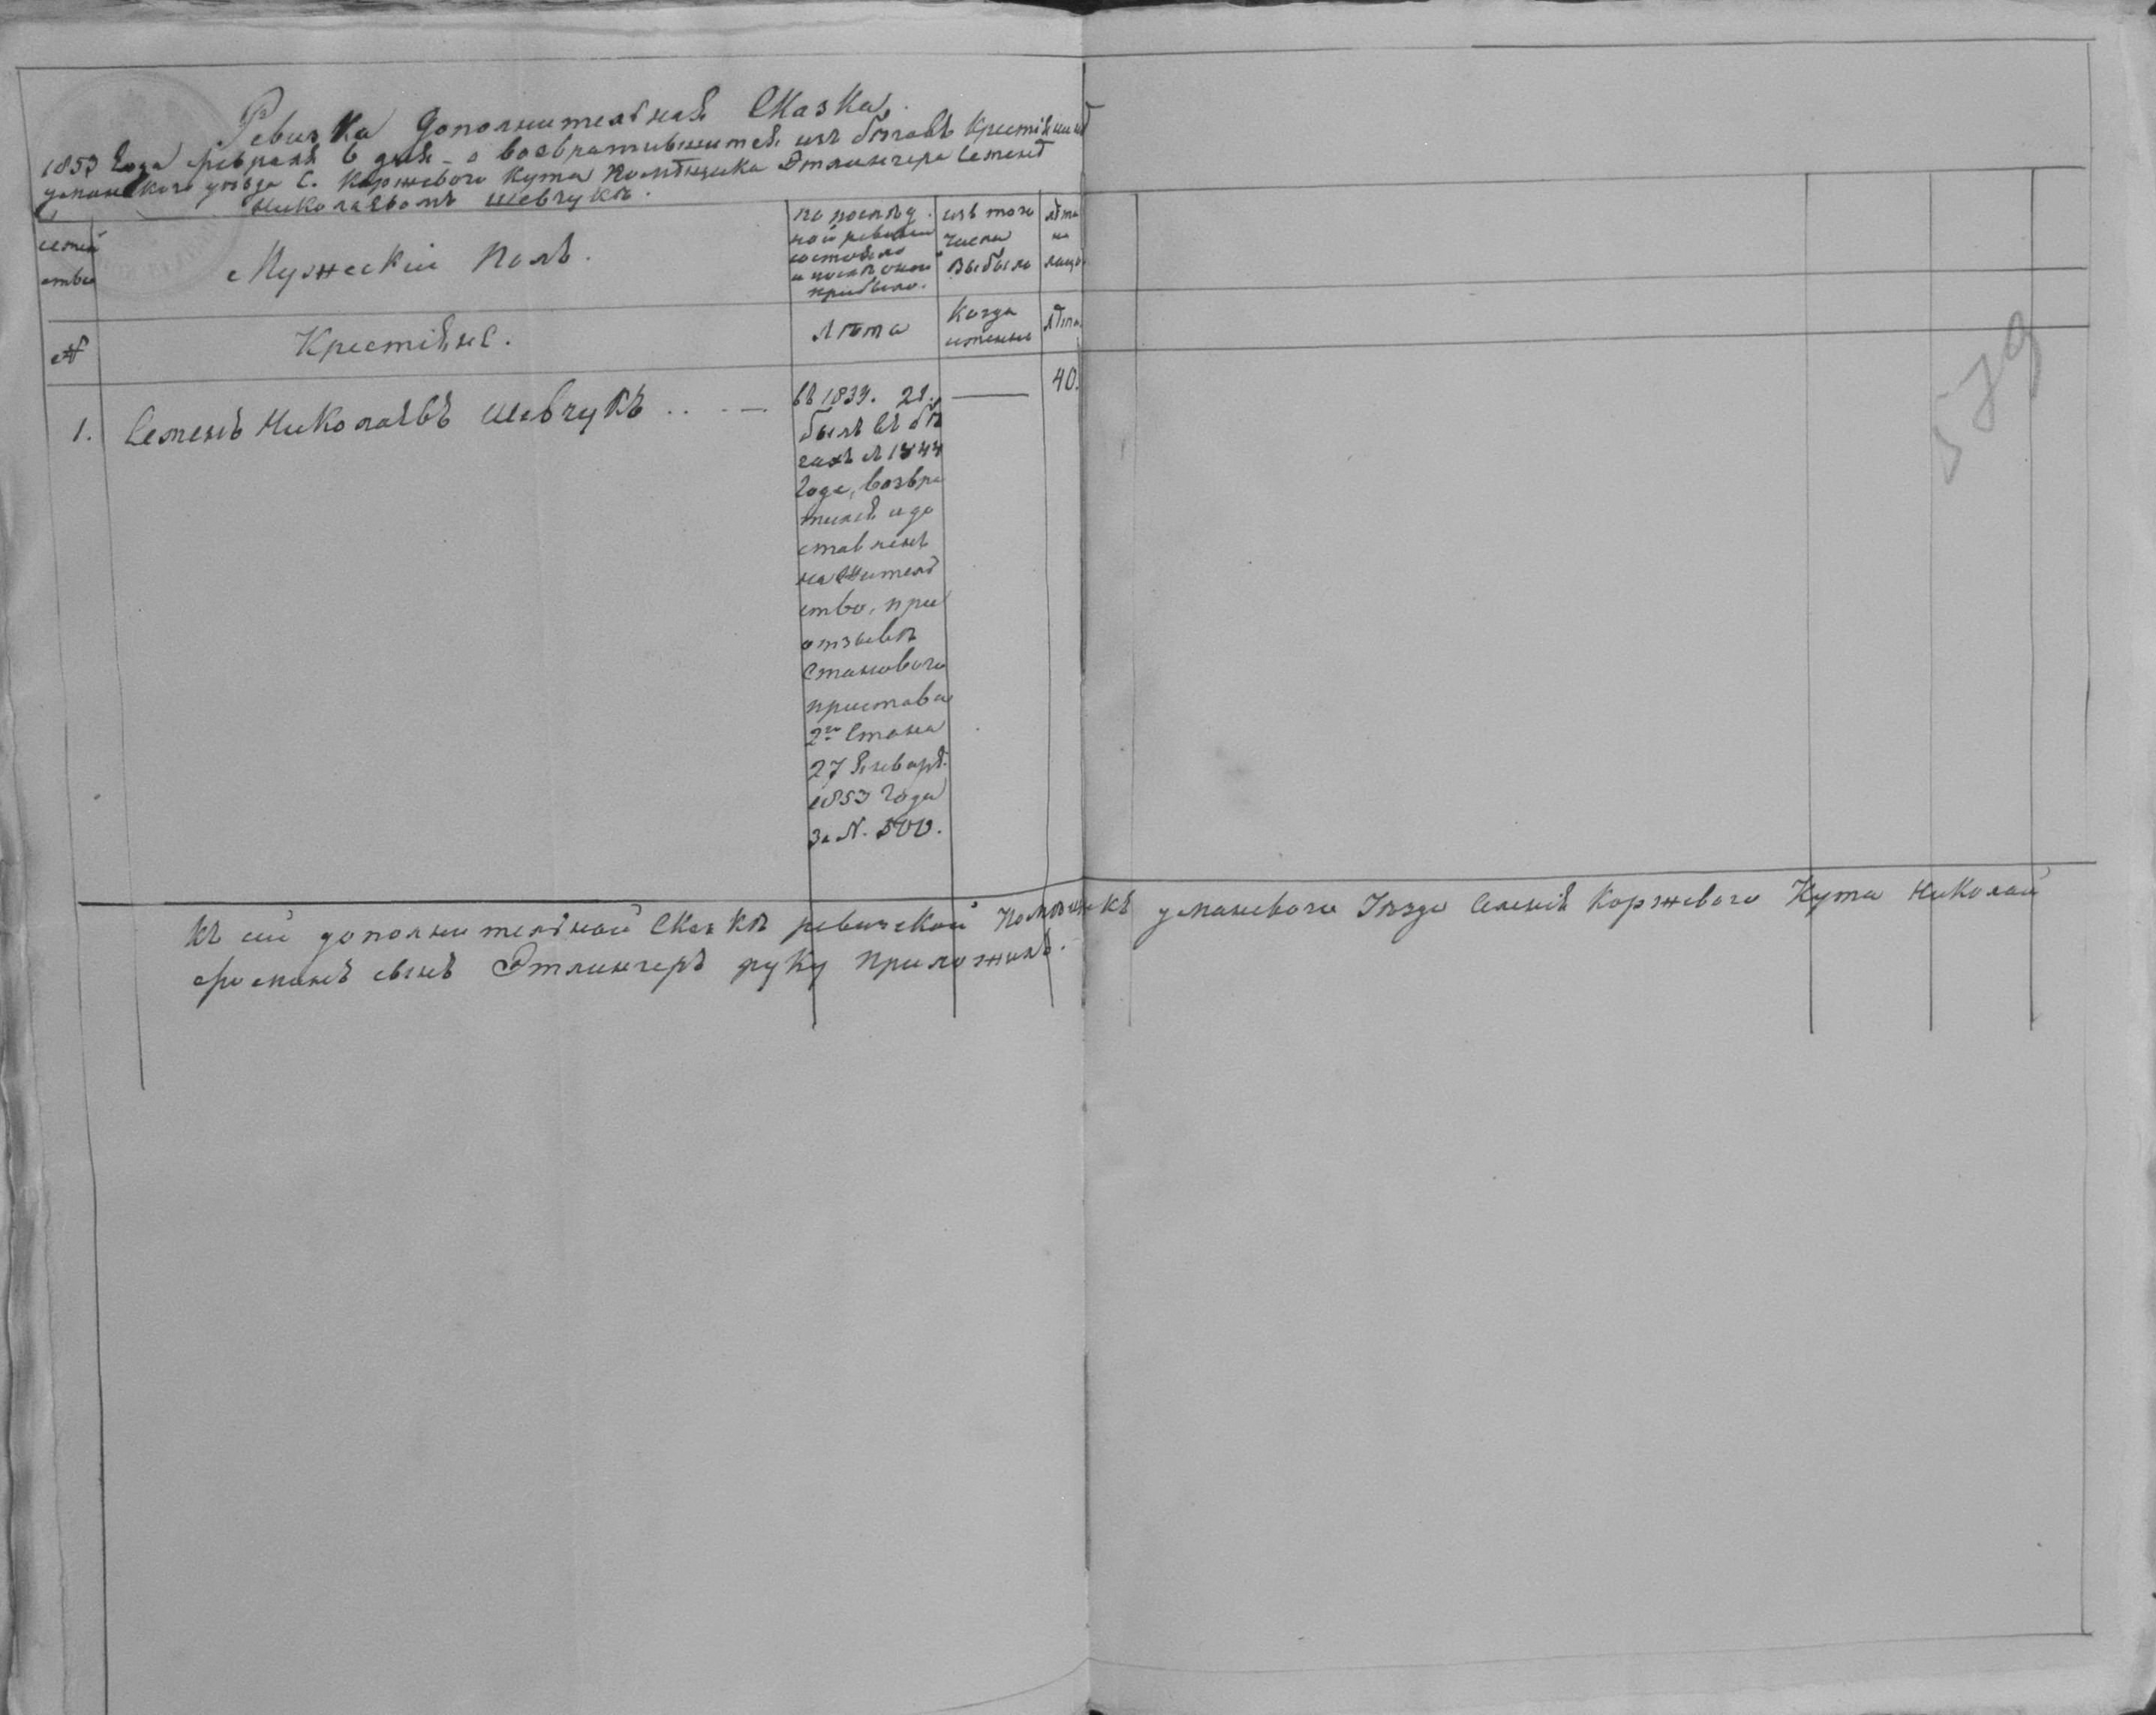 Ревизка Дополнительная Сказка.
1853 Года февраля 6 дня – о возвратившимся изъ бѣговъ Крестянинѣ
уманскаго уѣзда С. Коржевого Кута Помѣщика Этлингера Семенѣ
Николаевомъ Шевчукѣ.
семей
ства
Мужескій Полъ.
по послѣд
ной ревизіи
состояло
и послѣ оной
прибыло.
изъ того
числа
выбыло
лѣта
на
лицо
№
Крестіяне.
Лѣта
Когда
именно
лѣта
1. Семенъ Николаевъ Шевчукъ
въ 1839. 28.
40.
былъ въ бѣ
гахъ съ 1844
года, возвра
тился и до
ставленъ
на жител
ство, при
отзывѣ
Становаго
пристава
2го Стана
27 Января
1853 года
за N. 500.
579
Къ сій дополнителной Сказкѣ ревизской Помѣщикъ уманскаго уѣзда Селенія Коржевого Кута Николай
сынъ Этлингеръ руку приложилъ.